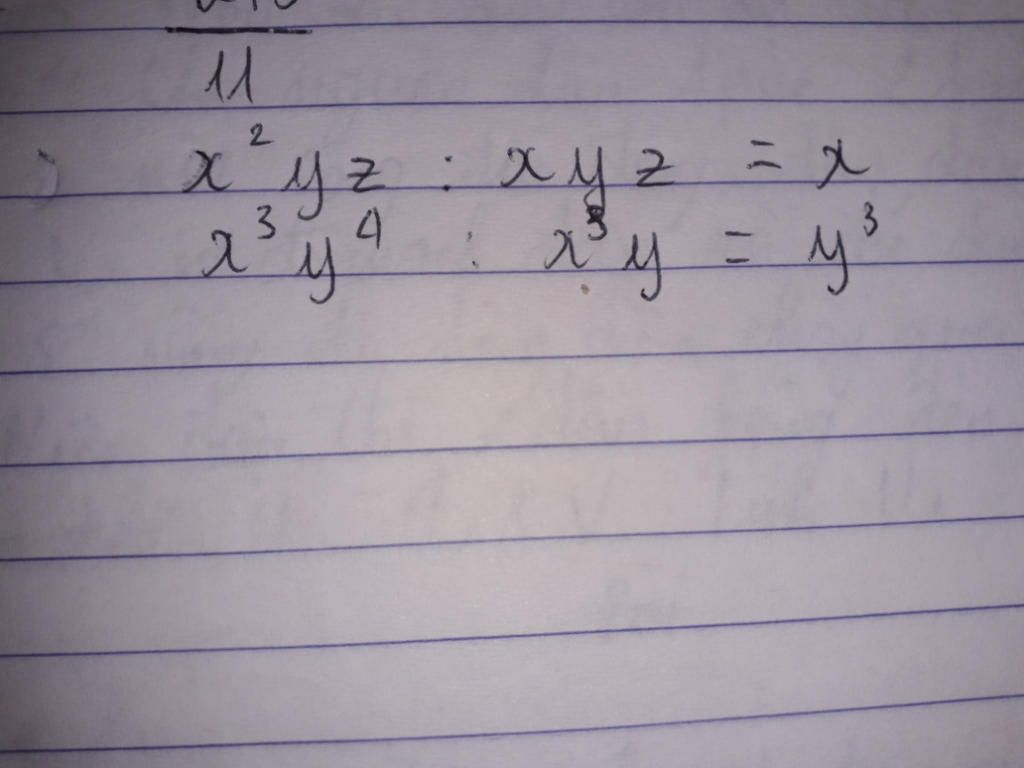 11
x² y z : x y z = x
x³ y⁴ : x³ y = y³